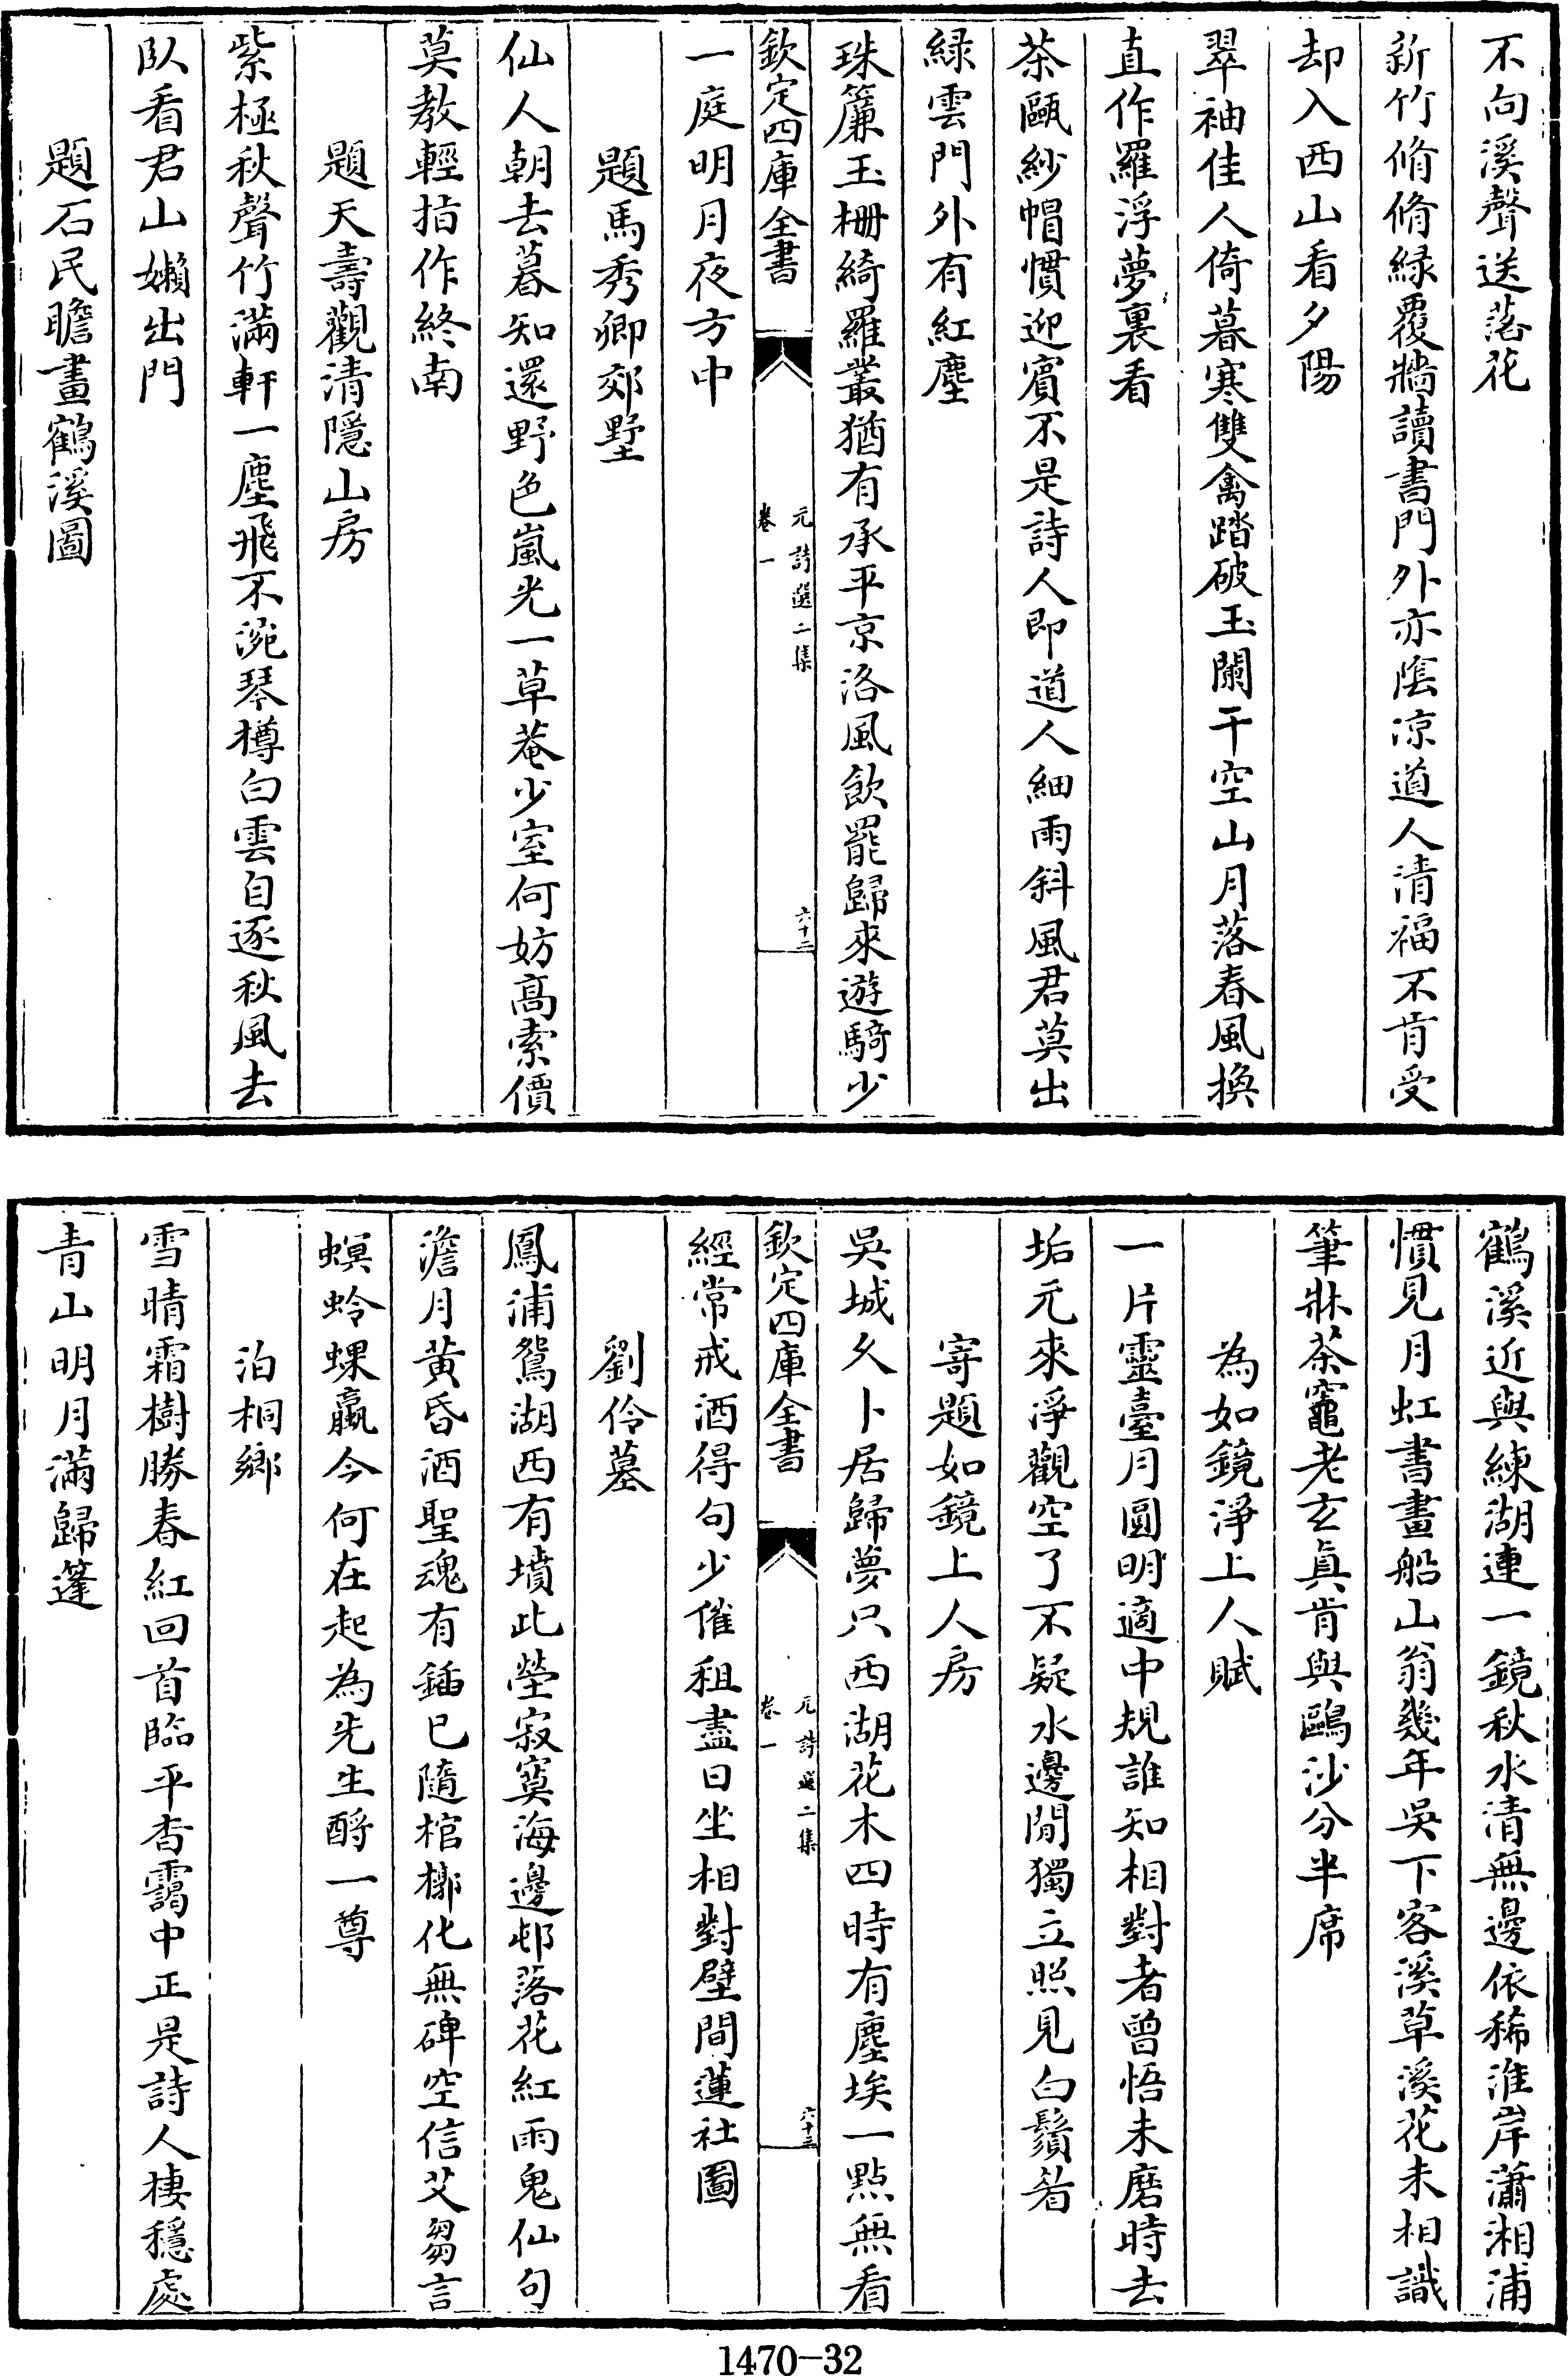 不向溪聲送落花
新竹脩脩緑覆牆讀書門外亦陰凉道人清福不肯受
却入西山看夕陽
翠袖佳人倚暮寒雙禽踏破玉闌干空山月落春風換
直作羅浮夢裏看
茶甌紗帽慣迎賓不是詩人即道人細雨斜風君莫出
緑雲門外有紅塵
珠簾玉栅綺羅叢猶有承平京洛風飲罷歸來遊騎少
欽定四庫全書
元詩選二集
卷一
六十二
一庭明月夜方中
題馬秀卿郊墅
仙人朝去暮知還野色嵐光一草菴少室何妨髙索價
莫教輕指作終南
題天壽觀清隱山房
紫極秋聲竹滿軒一塵飛不涴琴樽白雲自逐秋風去
臥看君山嬾出門
題石民瞻畫鶴溪圖
鶴溪近與練湖連一鏡秋水清無邊依稀淮岸瀟湘浦
慣見月虹書畫船山翁幾年吳下客溪草溪花未相識
筆牀茶竈老玄眞肯與鷗沙分半席
為如鏡淨上人賦
一片靈臺月圓明適中規誰知相對者曾悟未磨時去
垢元來淨觀空了不疑水邊閒獨立照見白鬚眉
寄題如鏡上人房
吳城久卜居歸夢只西湖花木四時有塵埃一點無看
欽定四庫全書
元詩選二集
卷一
六十三
經常戒酒得句少催租盡日坐相對壁間蓮社圖
劉伶墓
鳳浦鴛湖西有墳此塋寂寞海邊邨落花紅雨鬼仙句
澹月黃昏酒聖魂有鍤已隨棺槨化無碑空信艾芻言
螟蛉蜾蠃今何在起為先生酹一尊
泊桐鄉
雪晴霜樹勝春紅回首臨平杳靄中正是詩人棲穩處
青山明月滿歸篷
1470-32